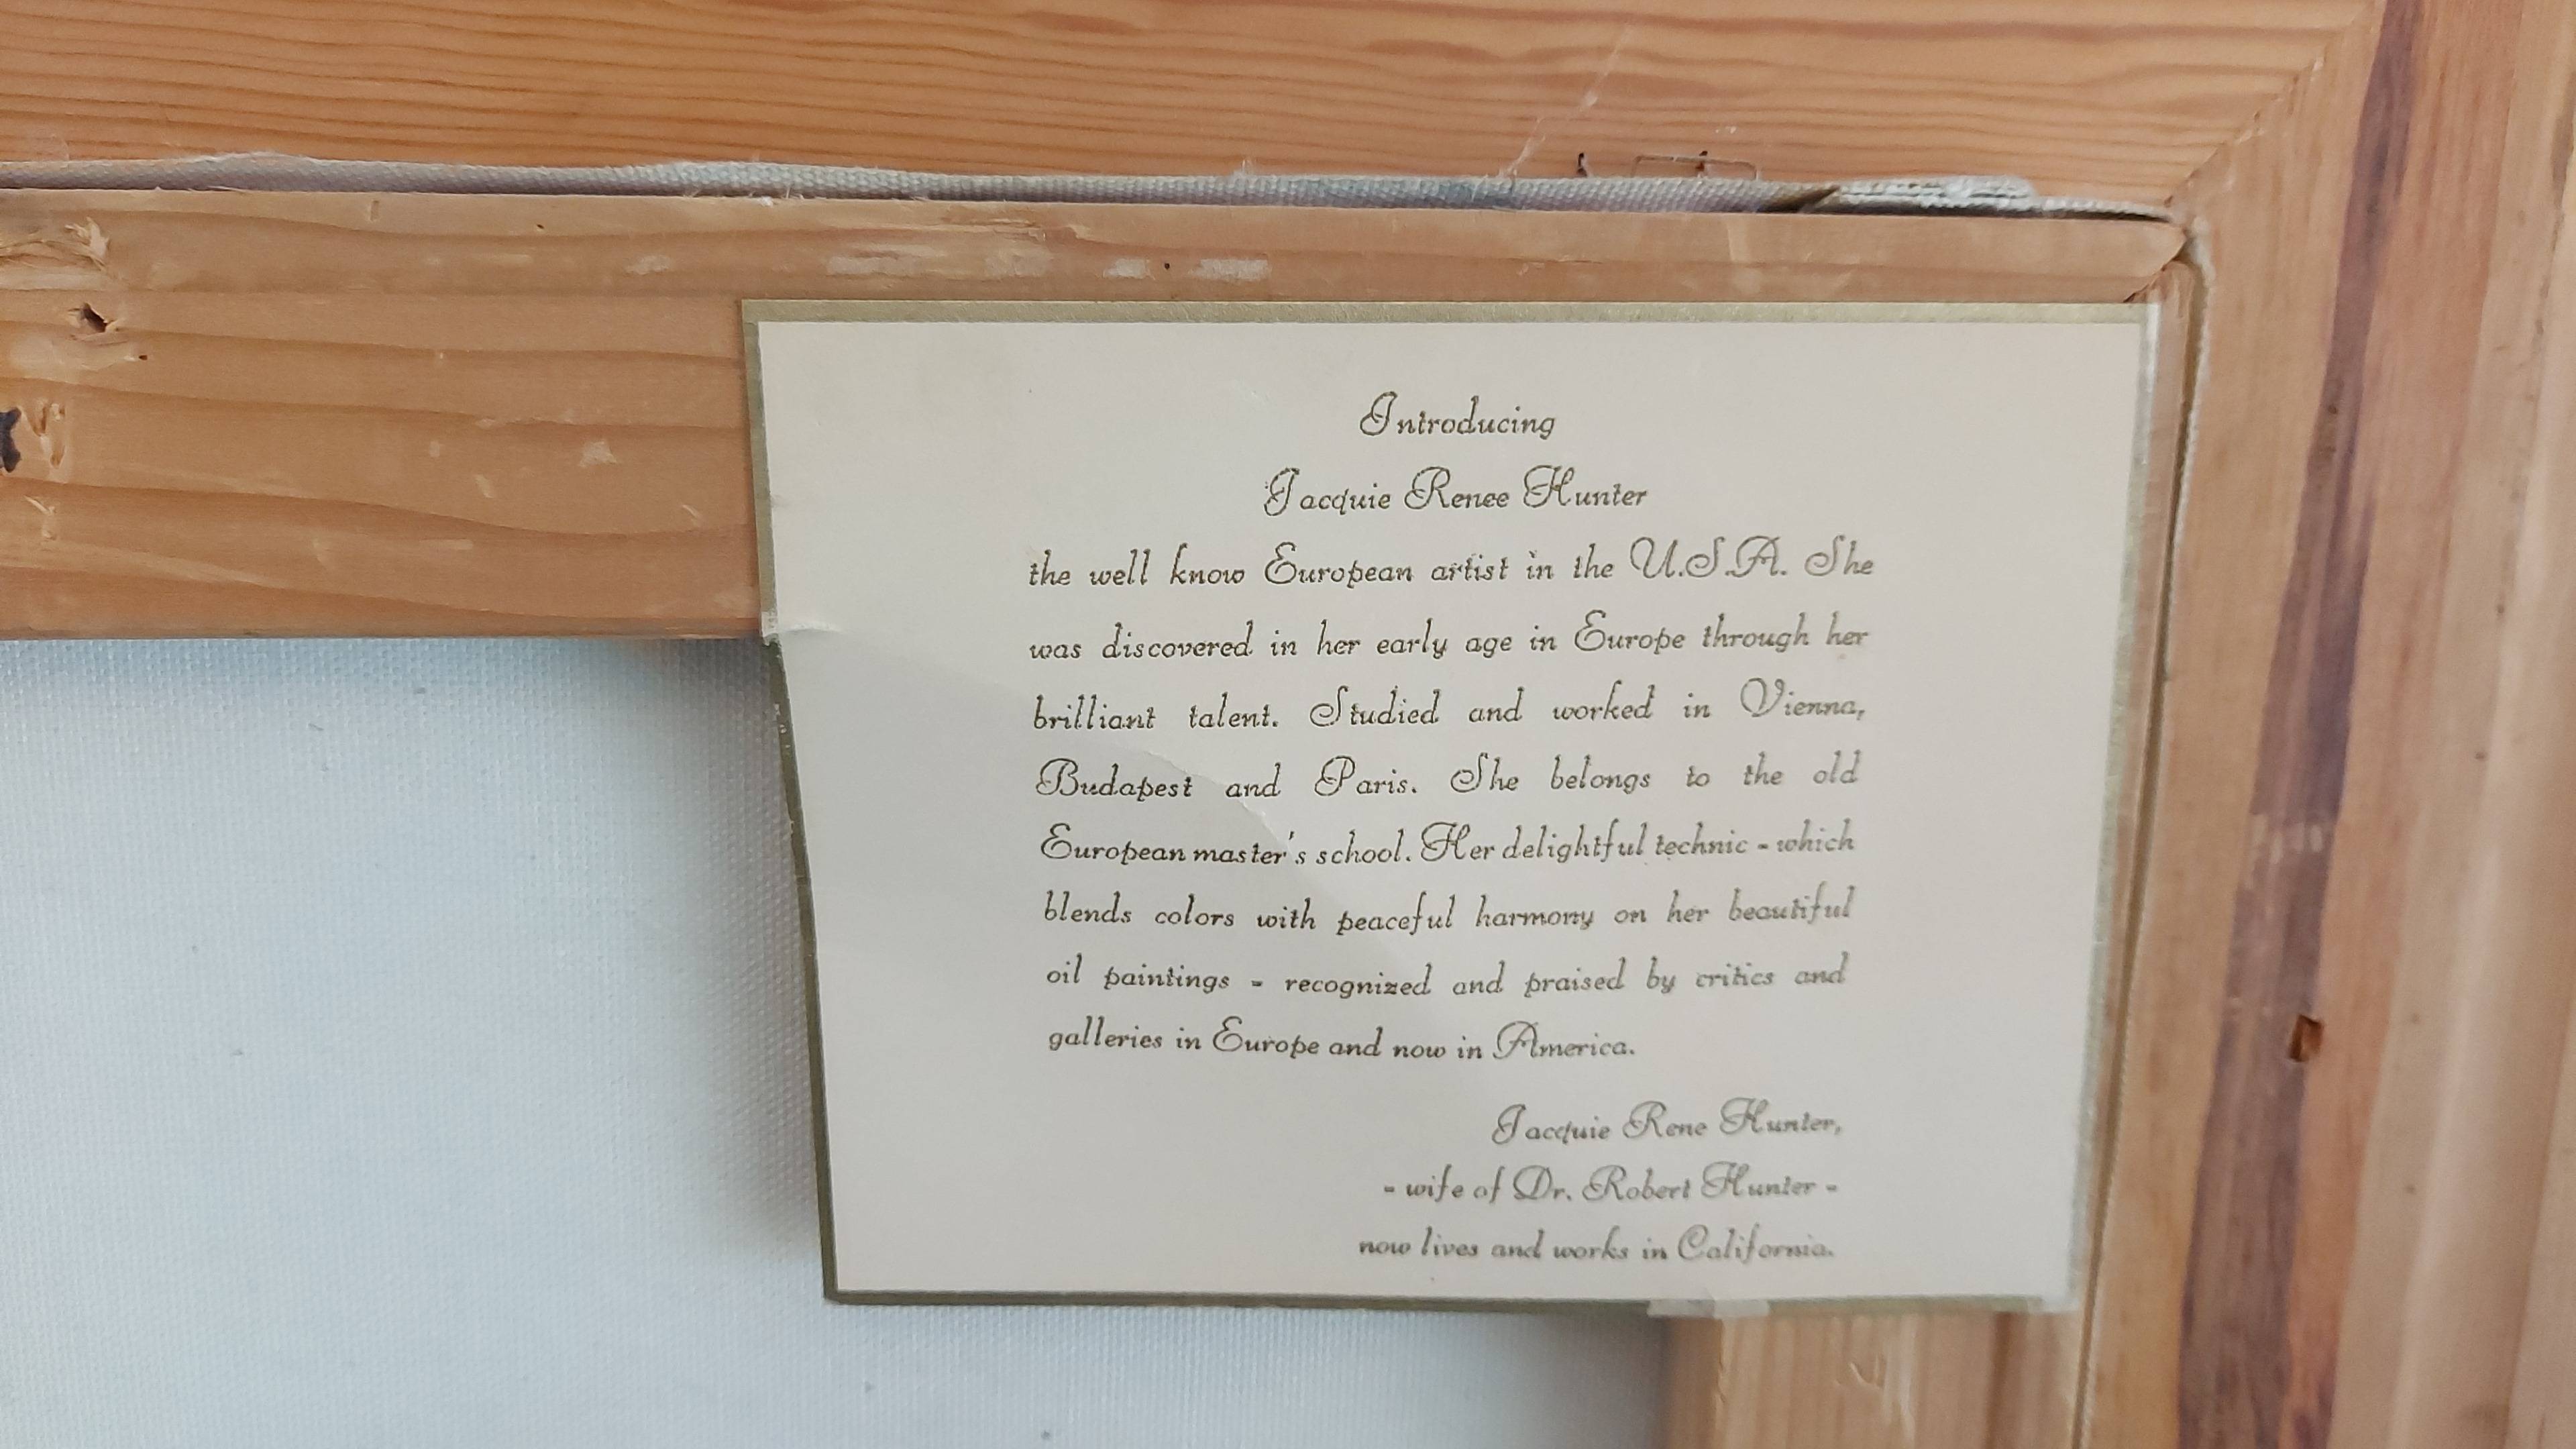 Introducing
Jacquie Renee Hunter
the well know European artist in the U.S.A. She
was discovered in her early age in Europe through her
brilliant talent. Studied and worked in Vienna,
Budapest and Paris. She belongs to the old
European master's school. Her delightful technic - which
blends colors with peaceful harmony on her beautiful
oil paintings - recognized and praised by critics and
galleries in Europe and now in America.
Jacquie Rene Hunter,
- wife of Dr. Robert Hunter -
now lives and works in California.